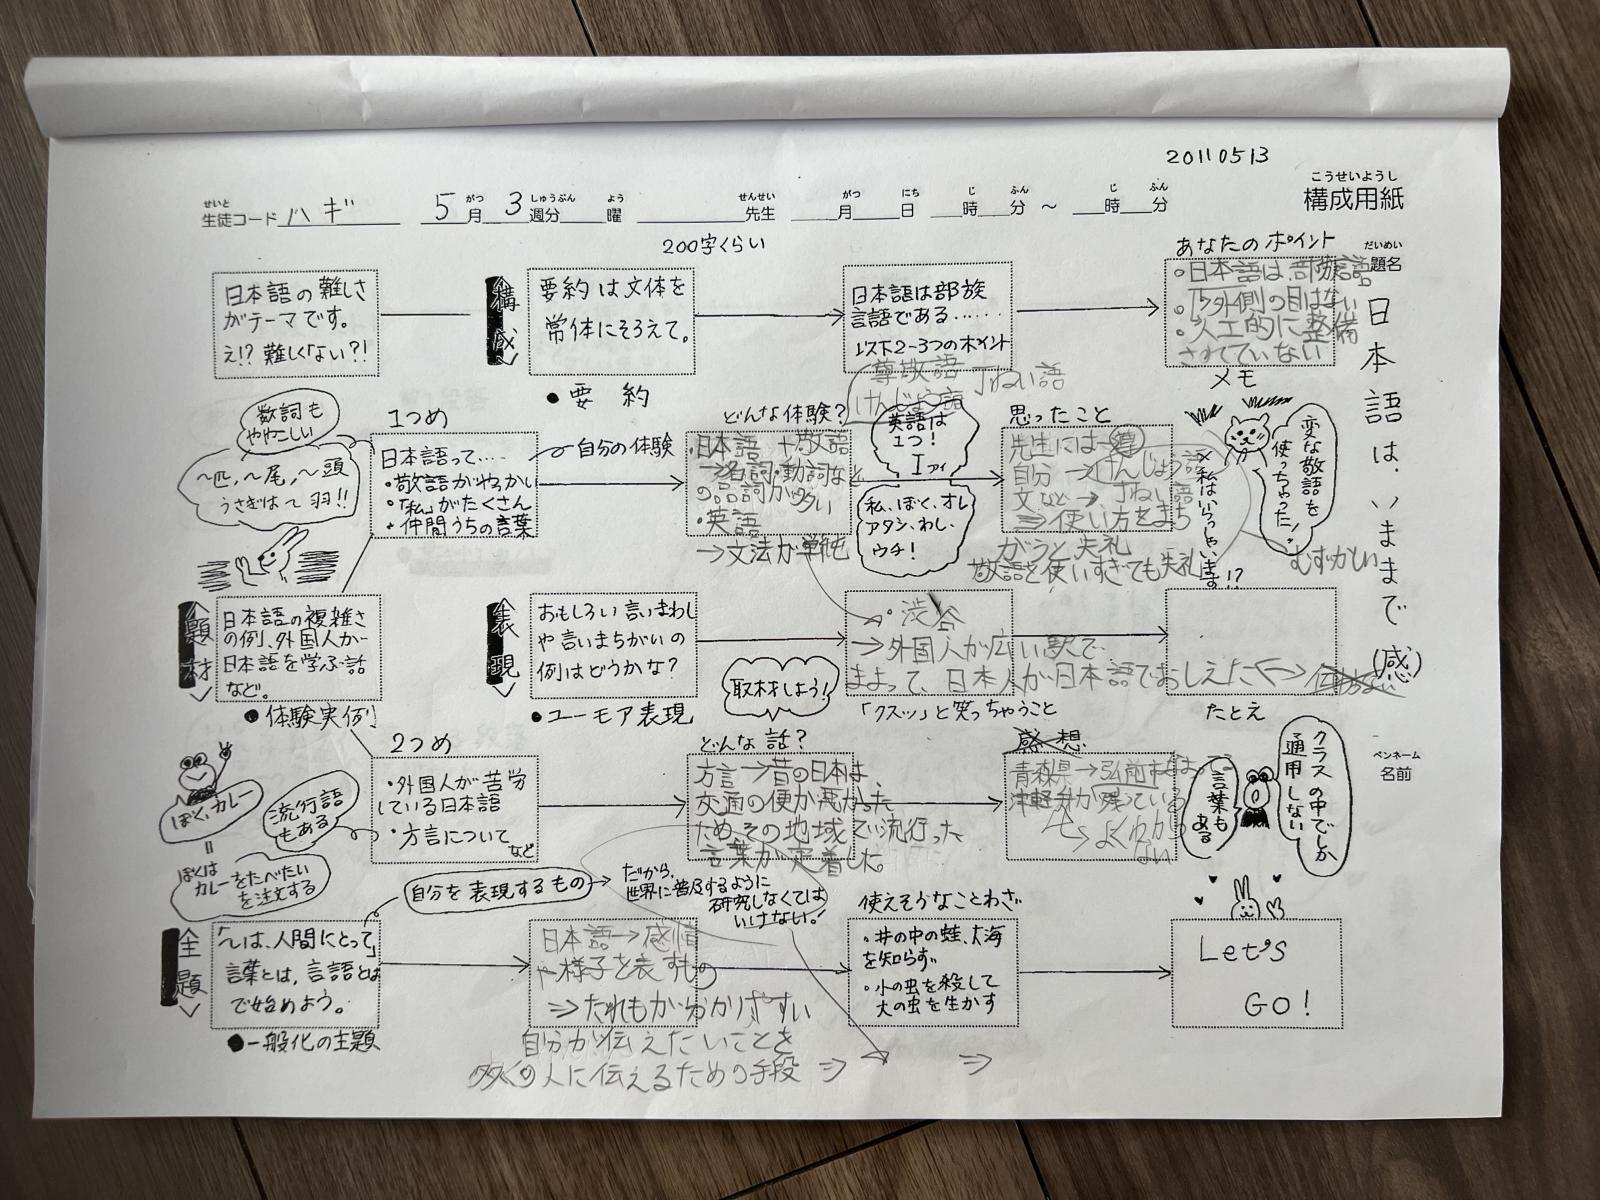 20110513
こうせいようし
構成用紙
せいと
生徒コード ハギ
がつ しゅうぶん よう せんせい がつ にち じ ふん じ ふん
5月 3週分 曜 先生 月 日 時 分 ～ 時 分
200字くらい
だいめい
題名
日本語は、いままで(感)
ペンネーム
名前
日本語の難しさ
がテーマです。
え!? 難しくない?!
構成
要約は文体を
常体にそろえて。
●要約
日本語は部族
言語である……
以下2-3つのポイント
あなたのポイント
・日本語は、部族語。
・外側の目はない
・人工的に整備
されていない
メモ
尊敬語 丁ねい語
けんじょう語
数詞も
ややこしい
～匹、～尾、～頭
うさぎは～羽!!
1つめ
日本語って‥‥
・敬語がやっかい
・「私」がたくさん
・仲間うちの言葉
自分の体験
どんな体験?
・日本語 + 敬語
→名詞・動詞など
の品詞が多い
・英語
→文法が単純
英語は
1つ!
I アイ
私、ぼく、オレ
アタシ、わし、
ウチ!
思ったこと
先生には→尊
自分→けんじょう語
文など→丁ねい語
⇒使い方をまち
がうと失礼
敬語を使いすぎても失礼
×私はいらっしゃいます!?
変な敬語を
使っちゃった!
むずかしい
題材
日本語の複雑さ
の例、外国人が
日本語を学ぶ話
など。
●体験実例
表現
おもしろい言いまわし
や言いまちがいの
例はどうかな?
●ユーモア表現
取材しよう!
・渋谷
→外国人が広い駅で
まよって、日本人が日本語でおしえたく→
「クスッ」と笑っちゃうこと
たとえ
ぼく、カレー
＝
ぼくは
カレーをたべたい
を注文する
流行語
もある
2つめ
・外国人が苦労
している日本語
・方言について
など
どんな話?
方言→昔の日本は、
交通の便が悪かった
ため、その地域で流行った
言葉が定着した。
感想
青森県→弘前市
津軽弁が残っている
→よくわから
ない
言葉も
ある
クラスの中でしか
通用しない
自分を表現するもの→
だから、
世界に普及するように
研究しなくては
いけない!
主題
「～は、人間にとって」
言葉とは、言語とは
で始めよう。
●一般化の主題
日本語→感情
や様子を表すもの
⇒だれもが分かりやすい
自分が伝えたいことを
多くの人に伝えるための手段 ⇒ ⇒
使えそうなことわざ
・井の中の蛙、大海
を知らず
・小の虫を殺して
大の虫を生かす
Let's
GO!